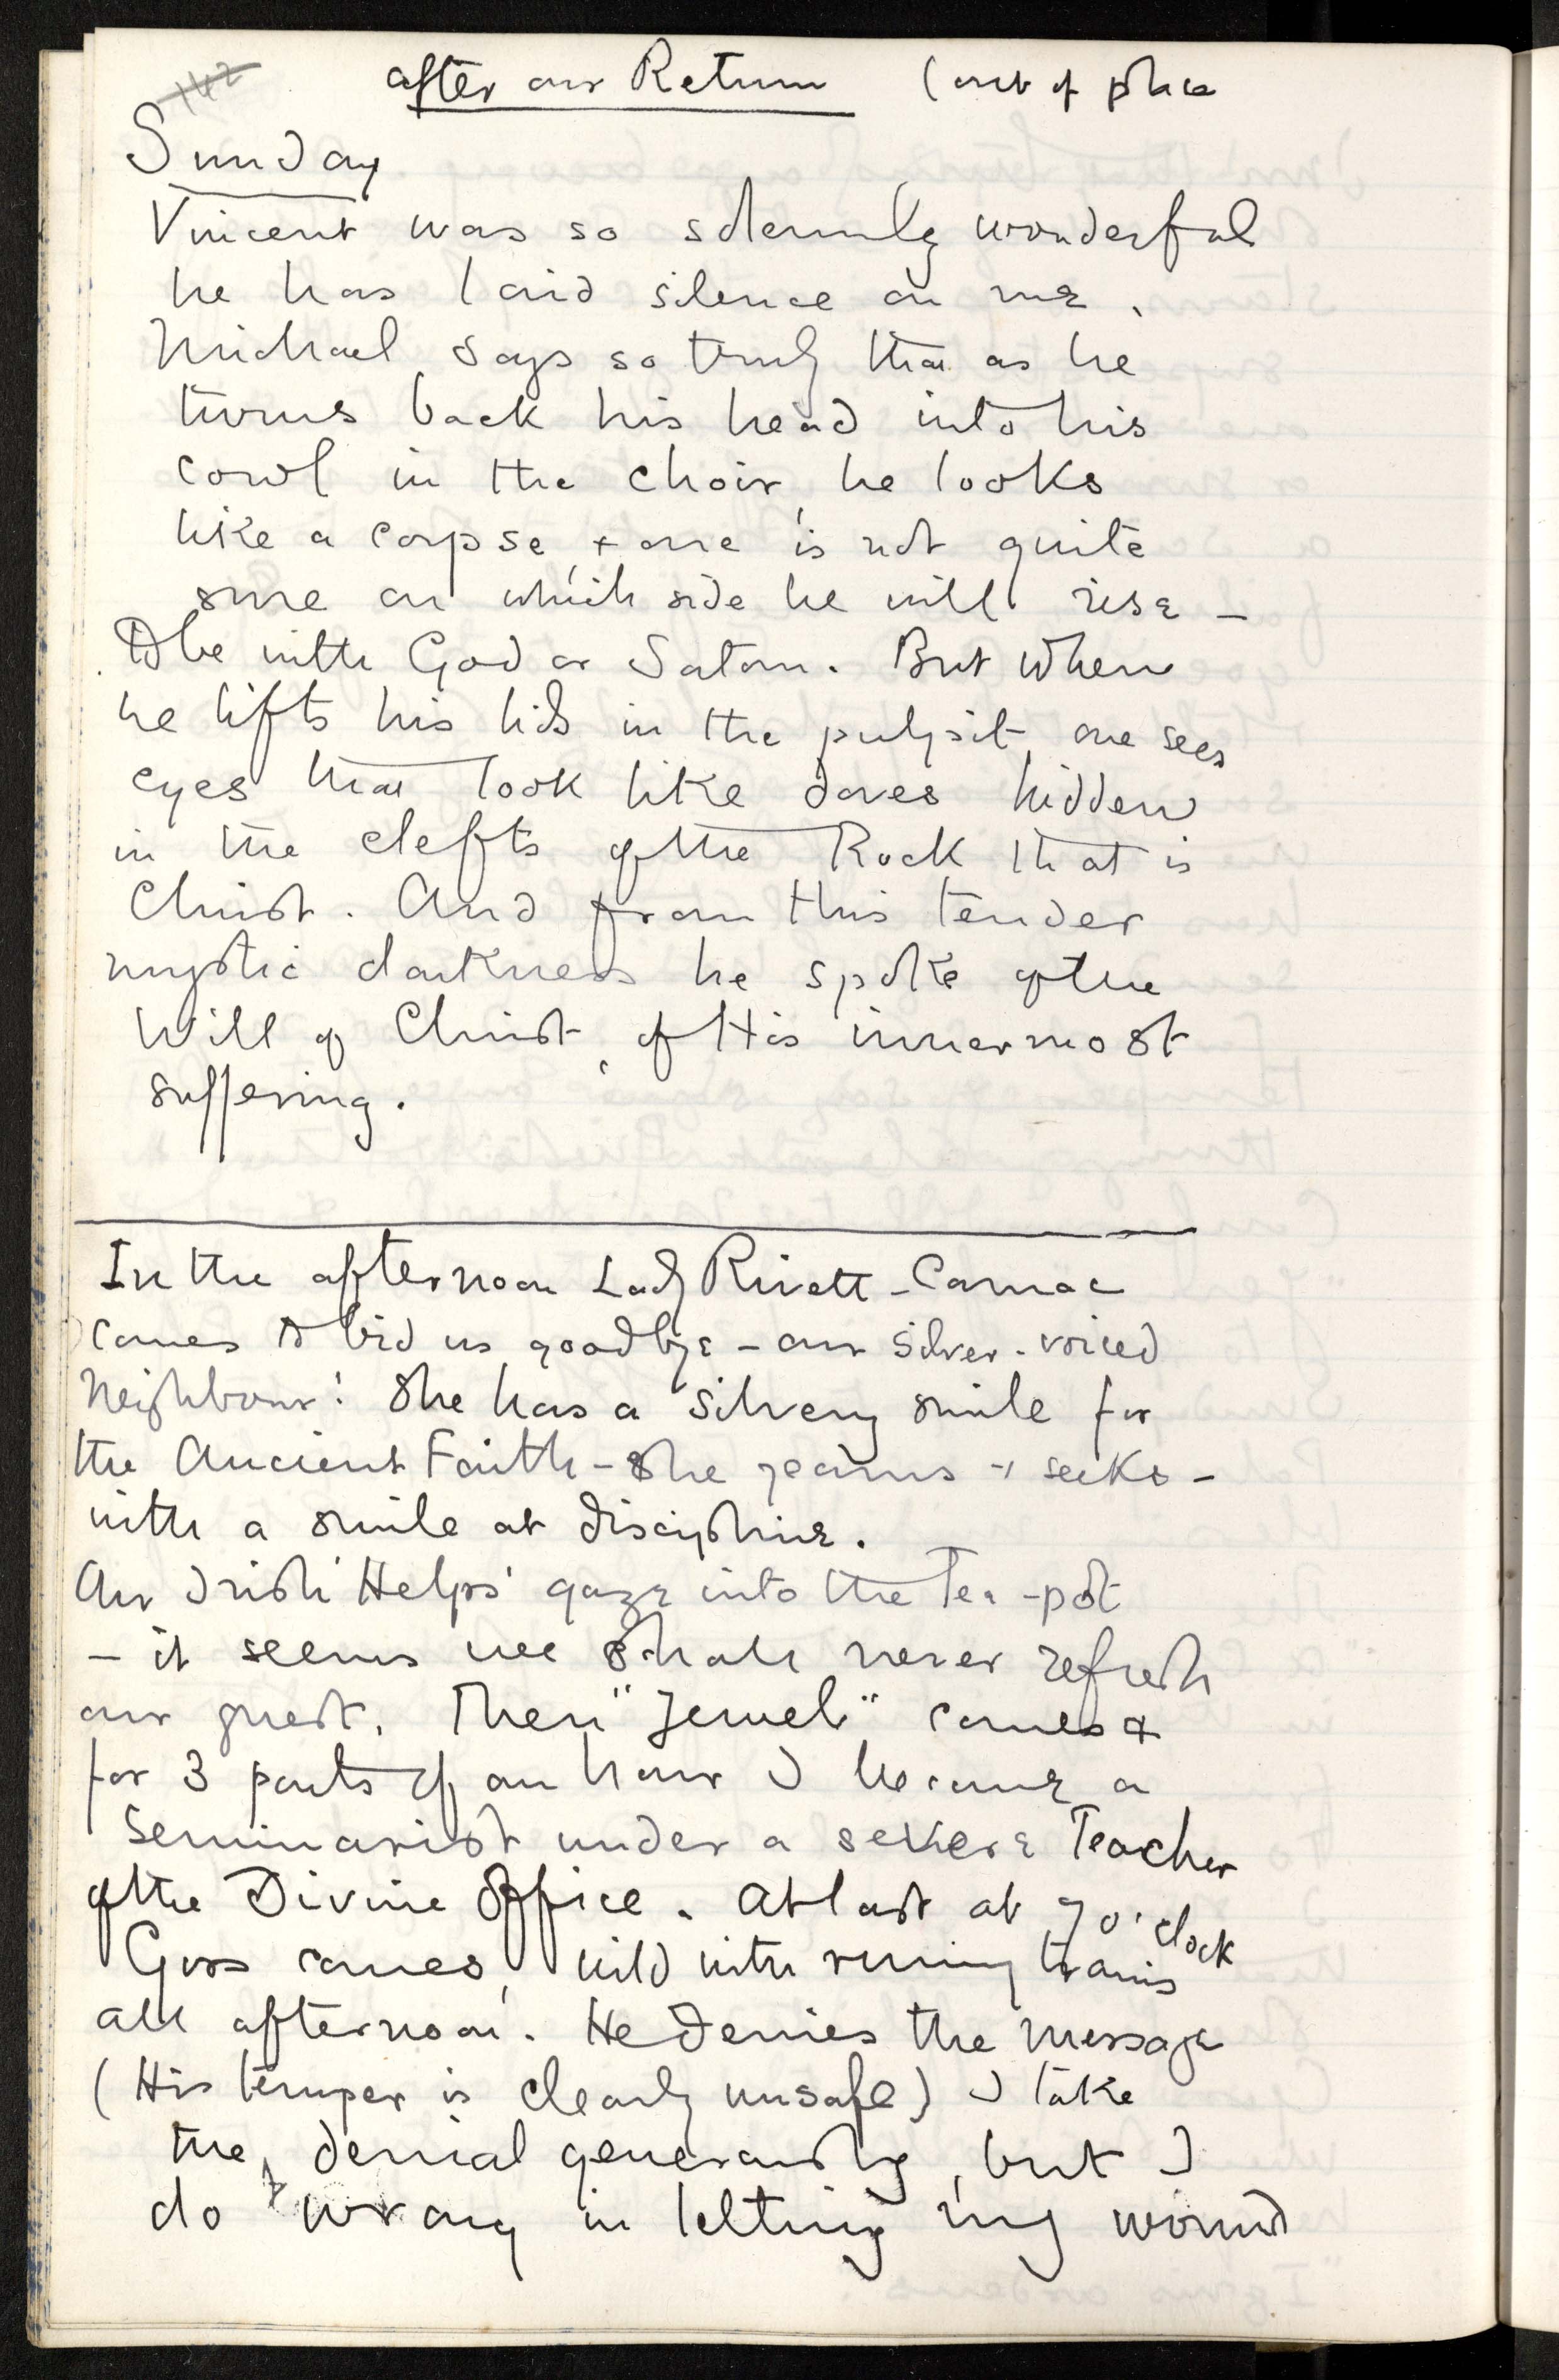 142
after our Return (out of place
Sunday
Vincent was so solemnly wonderful
he has laid silence on me.
Michael says so truly that as he
turns back his head into his
cowl in the choir, he looks
like a corpse, + one is not quite
sure on which side he will rise —
to be with God or Satan. But when
he lifts his lids in the pulpit, one sees
eyes that look like doves hidden
in the clefts of the Rock that is
Christ. And from this tender
mystic darkness he spoke of the
Will of Christ, of His innermost
suffering.
In the afternoon Lady Rivett-Carnac
comes to bid us goodbye — our silver-voiced
Neighbour! She has a silvery smile for
the Ancient Faith — she yearns + seeks —
with a smile at discipline.
Our Irish Helps' gaze into the Tea-pot
— it seems we shall never refresh
our guest. Then "Jewel" comes +
for 3 parts of an hour I become a
Seminarist under a severe Teacher
of the Divine Office. At last at 7 o'clock
Goss comes, wild with running trains
all afternoon. He denies the message
(His temper is clearly unsafe) I take
the denial generously, but I
do wrong in letting my wound